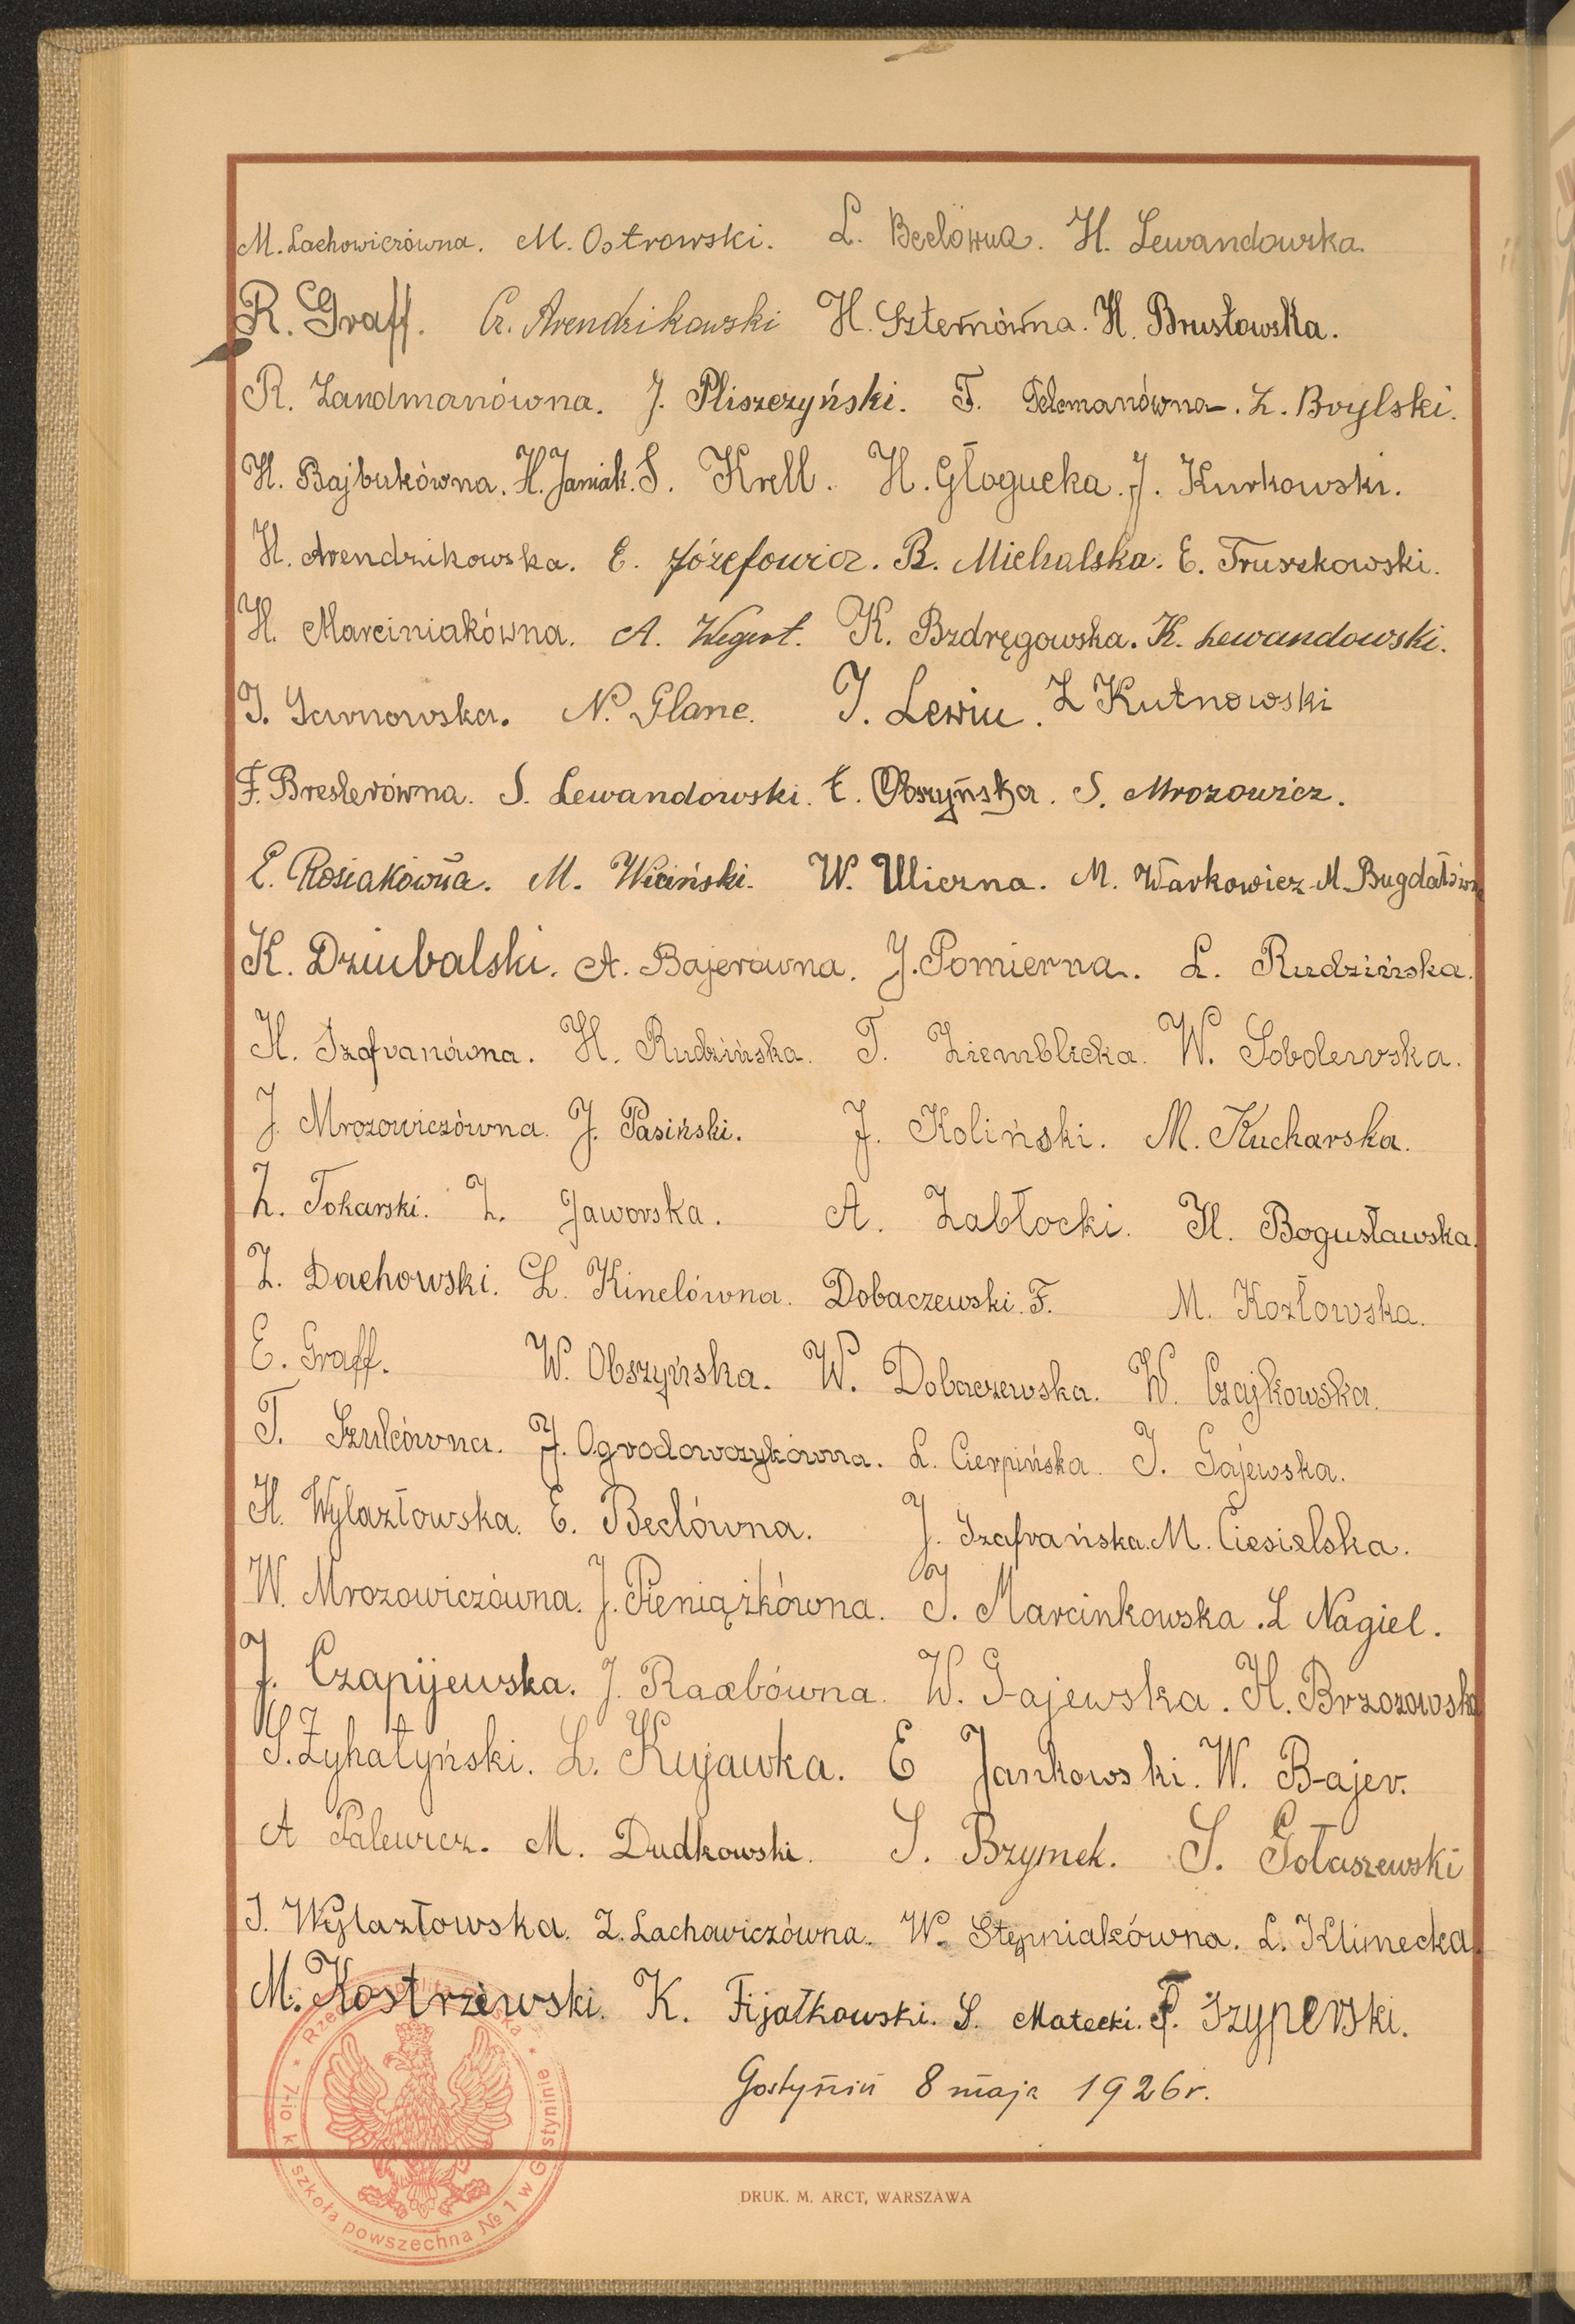 M. Lachowiczówna. M. Ostrowski. L. Beclówna. H. Lewandowska.
R. Graff. Cz. Arendzikowski H. Szternówna. H. Brusłowska.
R. Zandmanówna. J. Pliszczyński. F. Felemanówna. Z. Brylski.
H. Bajbukówna. H. Janiak. S. Krell. H. Głogucka. J. Kurkowski.
H. Arendzikowska. E. Józefowicz. B. Michalska. E. Truszkowski.
H. Marciniakówna. A. Wegert. K. Bzdręgowska. K. Lewandowski.
J. Tarnowska. N. Glanc. J. Lewin. Z Kutnowski
F. Breslerówna. S. Lewandowski. E. Obszyńska. S. Mrozowicz.
E. Rosiakówna. M. Wiciński. W. Uliczna. M. Warkowicz. M. Bugdałówna
K. Dziubalski. A. Bajerówna. J. Pomierna. L. Rudzińska.
H. Szafranówna. H. Rudzińska. T. Ziemblicka. W. Sobolewska.
J. Mrozowiczówna. J. Pasiński. J. Koliński. M. Kucharska.
Z. Tokarski. Z. Jaworska. A. Zabłocki. H. Bogusławska.
Z. Dachowski. L. Kinelówna. Dobaczewski. F. M. Kozłowska.
E. Graff. W. Obszyńska. W. Dobaczewska. W. Czajkowska.
T. Szulcówna. J. Ogrodowczykówna. L. Cierpińska. J. Gajewska.
H. Wylazłowska. E. Beclówna. J. Szafrańska. M. Ciesielska.
W. Mrozowiczówna. J. Pieniążkówna. J. Marcinkowska. L Nagiel.
J. Czapijewska. J. Raabówna. W. Gajewska. H. Brzozowska
S. Żyhałyński. L. Kujawka. E Jankowski. W. Bajer.
A Palewicz. M. Dudkowski. S. Bzymek. S. Gołaszewski
J. Wylazłowska. Z. Lachowiczówna. W. Stępniakówna. L. Klimecka.
M. Kostrzewski. K. Fijałkowski. S. Małecki. F. Szyperski.
Gostynin 8 maja 1926 r.
Rzeczpospolita Polska * 7-io kl. szkoła powszechna № 1 w Gostyninie *
DRUK. M. ARCT, WARSZAWA